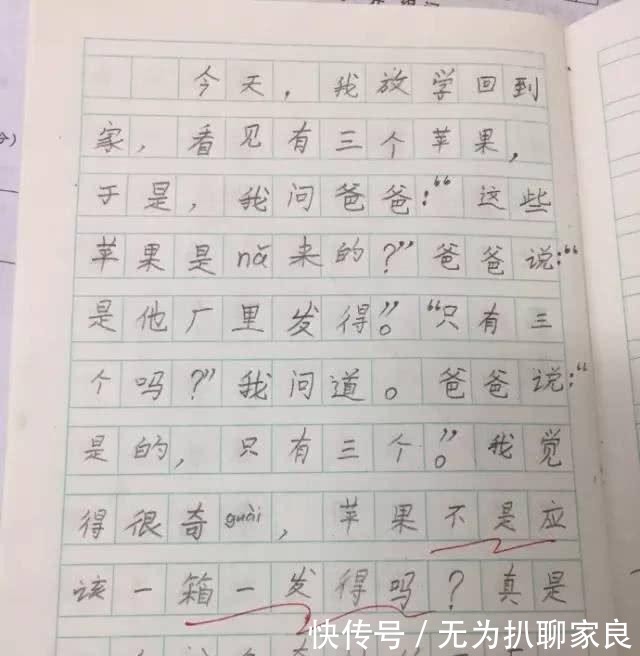 今天，我放学回到
家，看见有三个苹果，
于是，我问爸爸：“这些
苹果是nǎ来的？”爸爸说：“
是他厂里发得”。“只有三
个吗？”我问道。爸爸说：“
是的，只有三个”。我觉
得很奇guài，苹果不是应
该一箱一发得吗？真是
快传号/无为扒聊家良